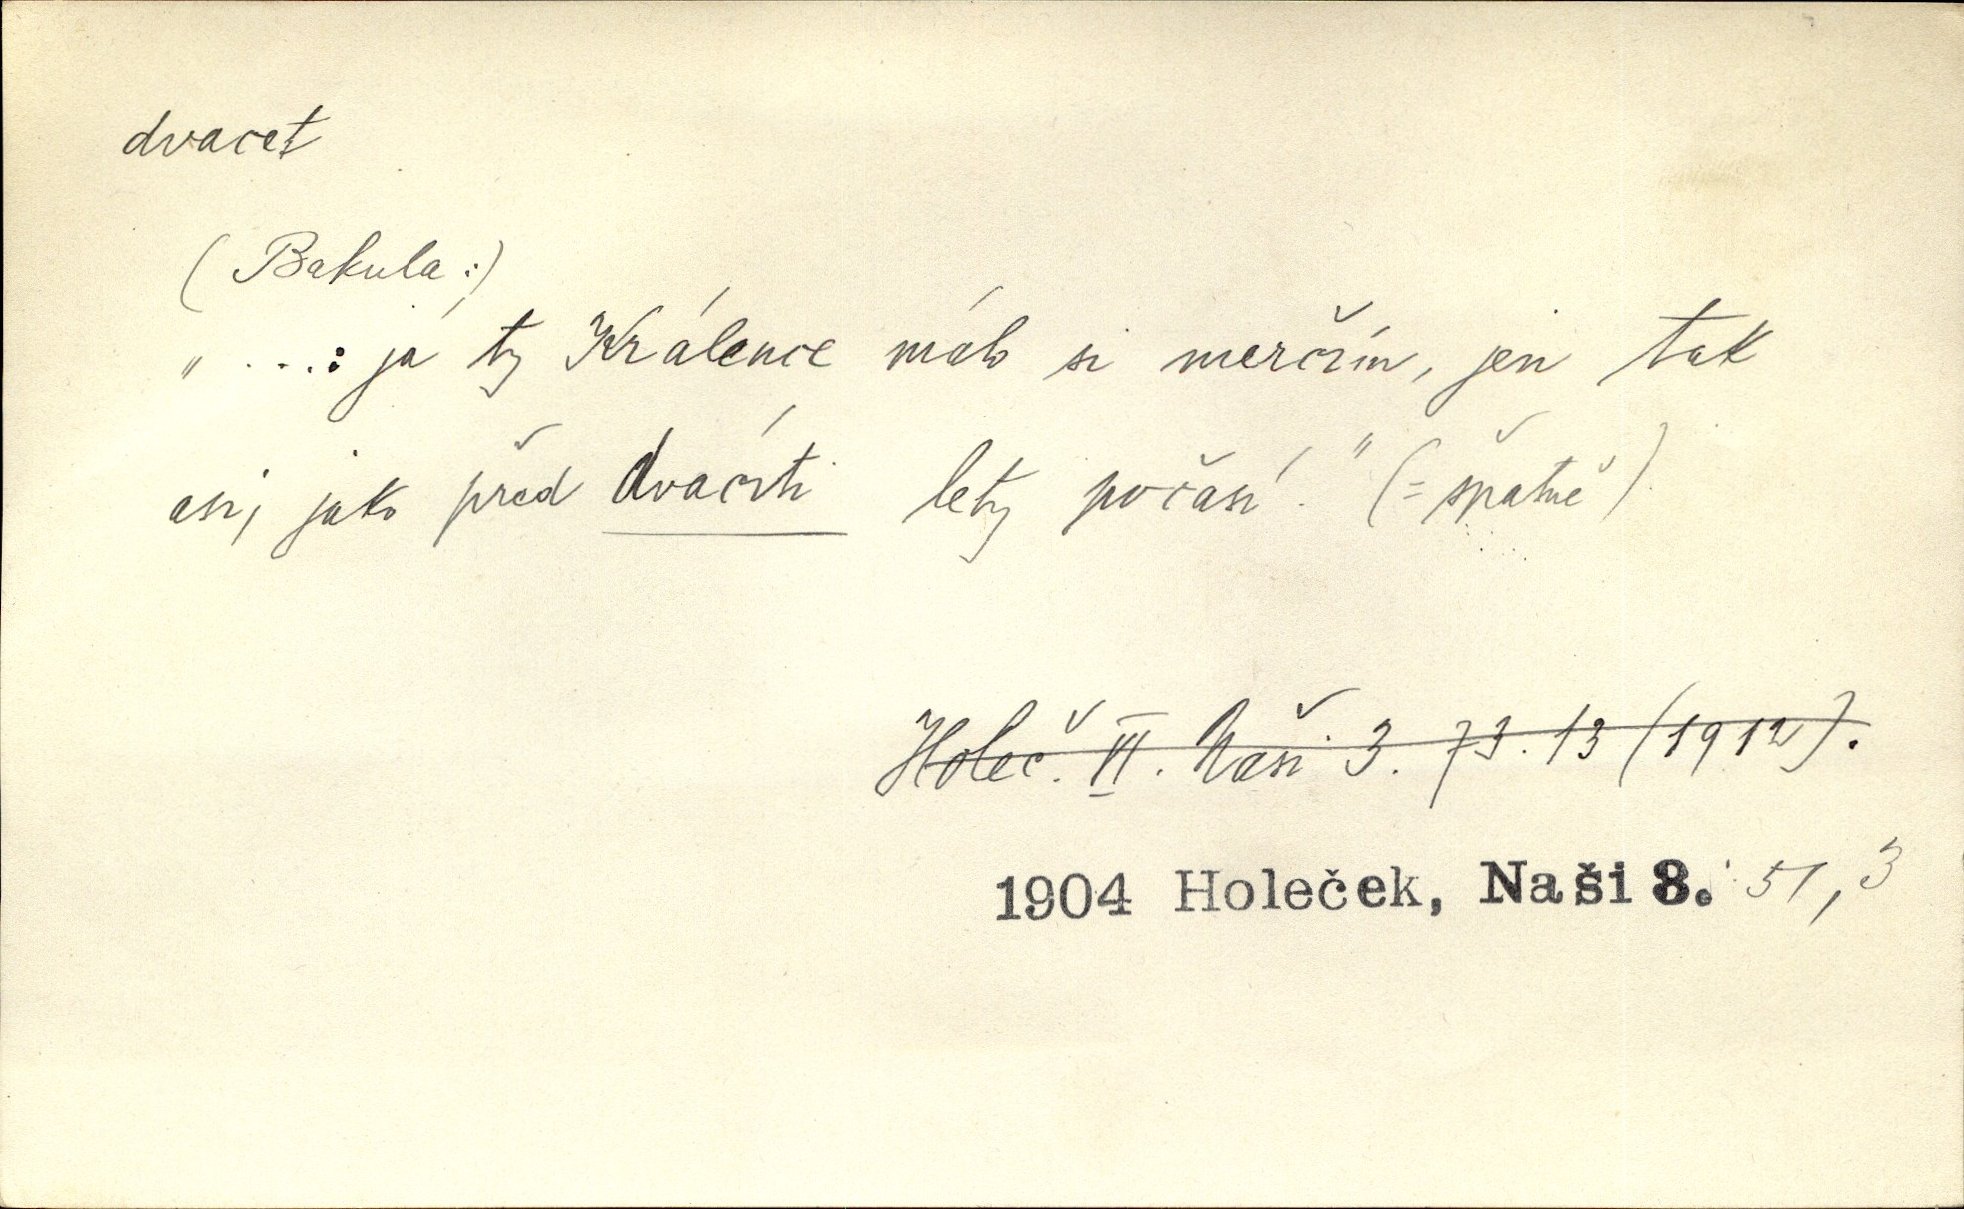 dvacet
(Bakula:)
„ ...: já ty Králence málo si merčím, jen tak
asi, jako před dvacíti lety počasí." (= špatně)
Holeč. VI. Naši 3. 73. 13 (1912).
1904 Holeček, Naši 8. 51, 3